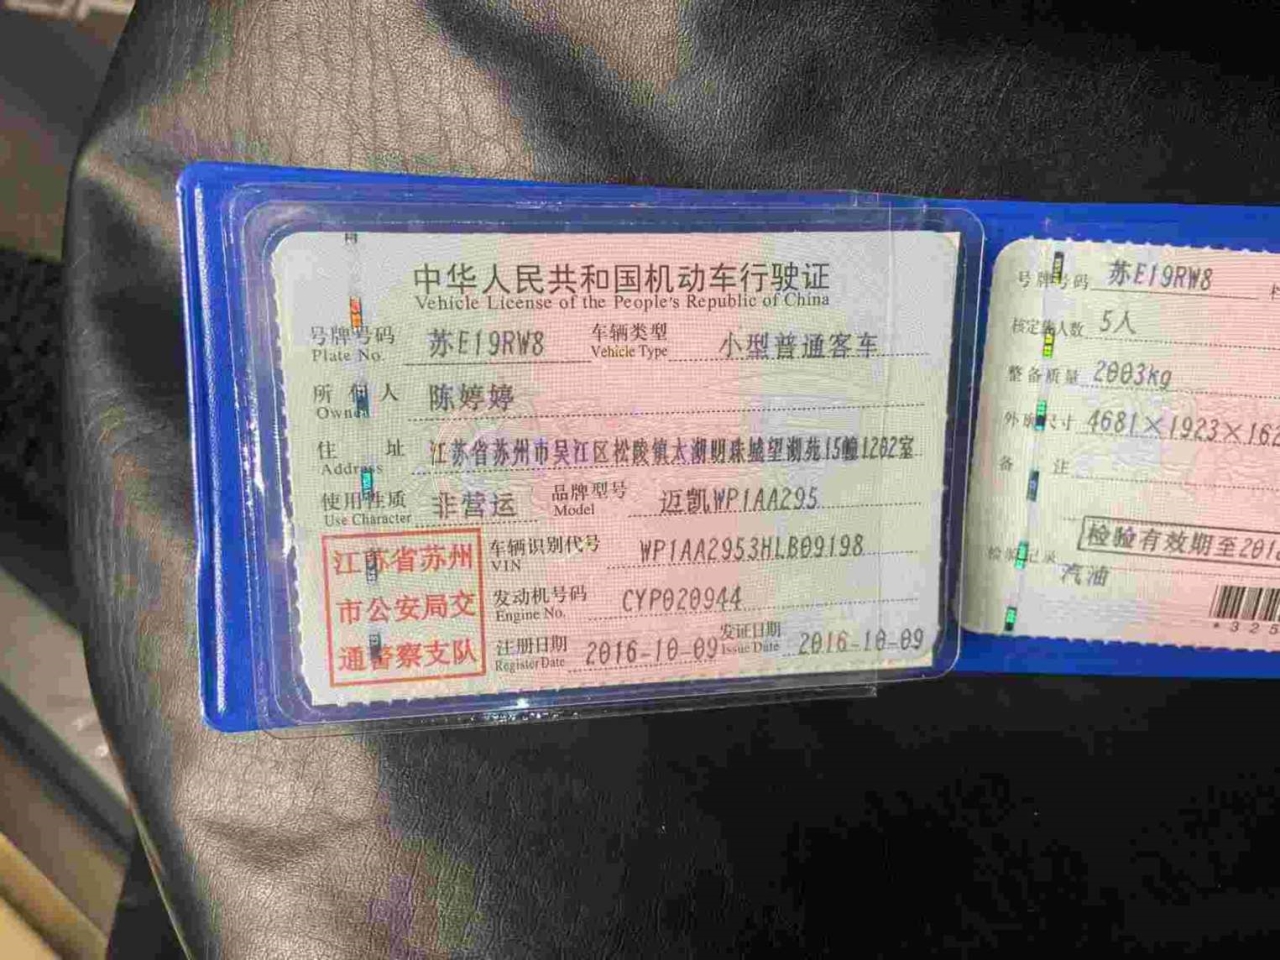 中华人民共和国机动车行驶证
Vehicle License of the People's Republic of China
号牌号码 苏E19RW8 车辆类型 小型普通客车
Plate No. Vehicle Type
所有人 陈婷婷
Owner
住址 江苏省苏州市吴江区松陵镇太湖明珠城望湖苑15幢1202室
Address
使用性质 非营运 品牌型号 迈凯WP1AA295
Use Character Model
江苏省苏州
市公安局交
通警察支队
车辆识别代号 WP1AA2953HLB09198
VIN
发动机号码 CYP020944
Engine No.
注册日期 2016-10-09 发证日期 2016-10-09
Register Date Issue Date
号牌号码 苏E19RW8
核定载人数 5人
整备质量 2003kg
外廓尺寸 4681×1923×162
备注
检验有效期至201
检验记录
汽油
*325